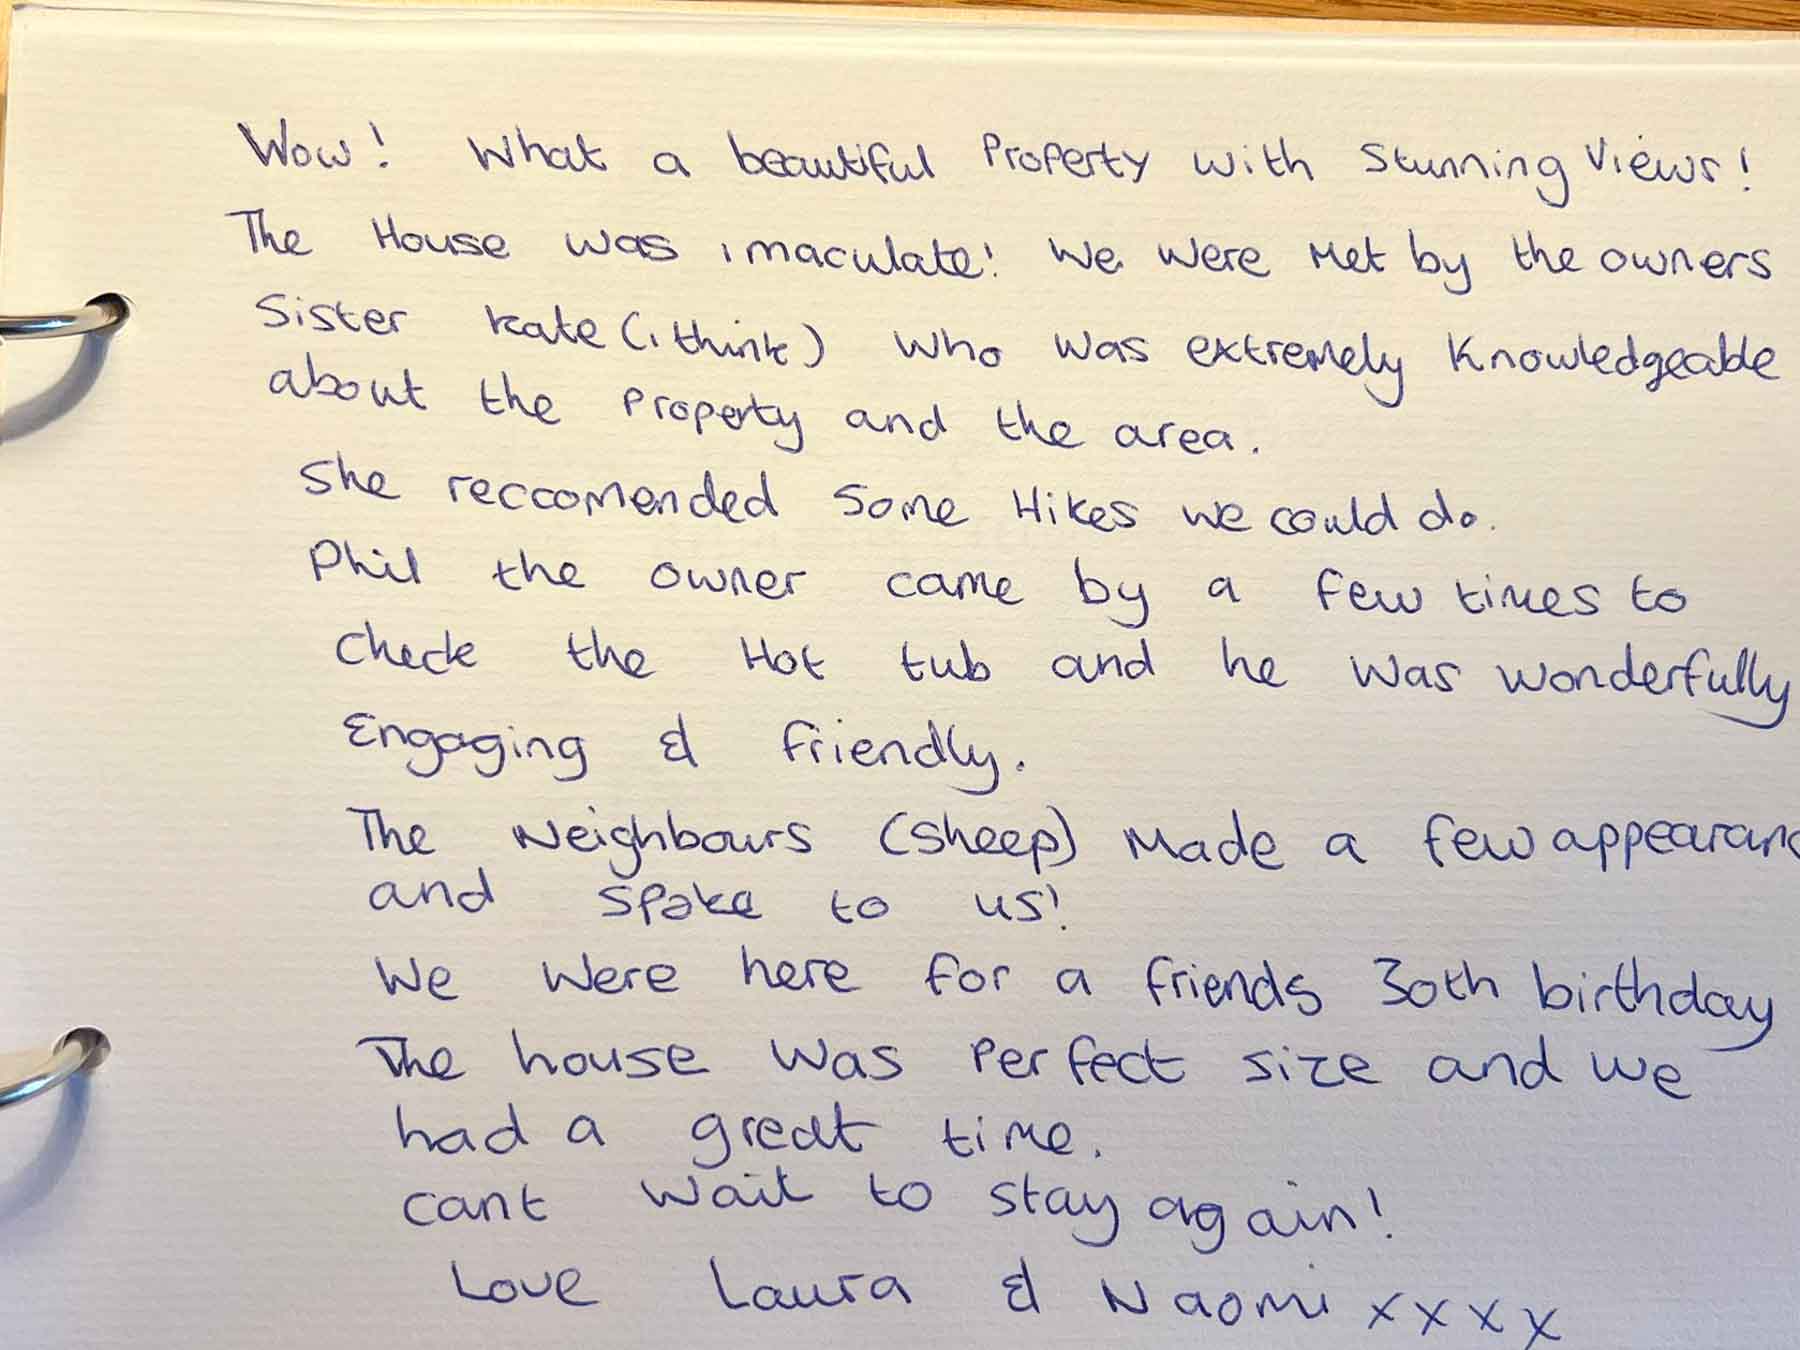 Wow! What a beautiful Property with Stunning Views!
The House was imaculate! We were Met by the owners
Sister Kate (i think) who was extremely Knowledgeable
about the Property and the area.
She reccomended Some Hikes we could do.
Phil the owner came by a few times to
check the Hot tub and he was wonderfully
Engaging & friendly.
The Neighbours (Sheep) Made a few appearanc
and spoke to us!
We were here for a friends 30th birthday
The house was Perfect size and we
had a great time.
cant wait to stay again!
Love Laura & Naomi xxxx